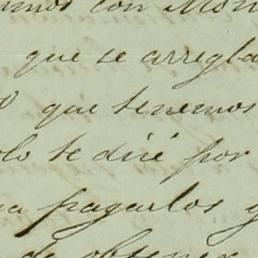 con Mon
que se arregla
que tenemos
lo te diré por
pagarlos y
de obtener